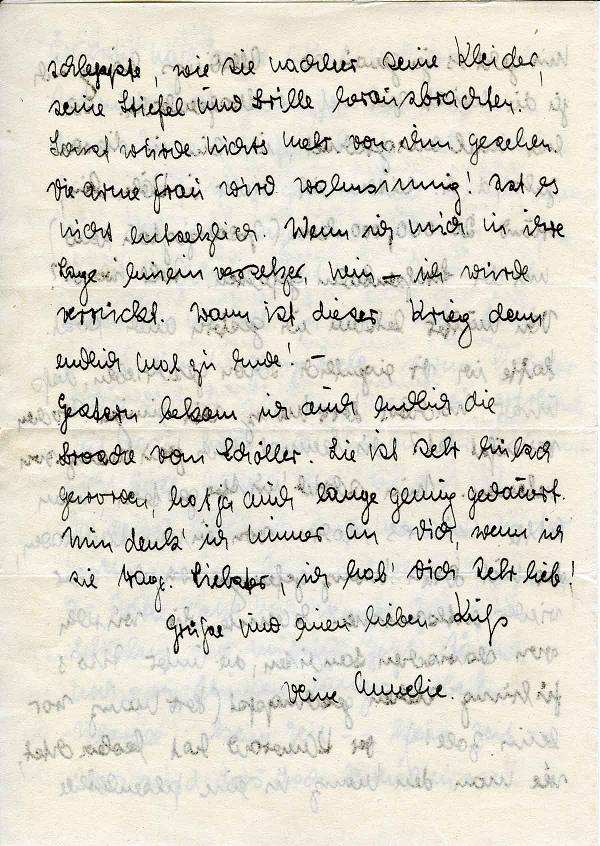 schleppte, wie sie nachher seine Kleider,
seine Stiefel und Brille herausbrachten.
Sonst wurde nichts mehr von ihm gesehen.
Die arme Frau wird wahnsinnig! Ist es
nicht entsetzlich. Wenn ich mich in ihre
Lage hinein versetze, nein – ich würde
verrückt. Wann ist dieser Krieg denn
endlich mal zu Ende! –
Gestern bekam ich auch endlich die
Brosche vom Schöller. Sie ist sehr hübsch
geworden, hat ja auch lange genug gedauert.
Nun denk' ich immer an Dich, wenn ich
sie trage. Liebster, ich hab' Dich sehr lieb!
Grüße und einen lieben Kuß
Deine Annelie.